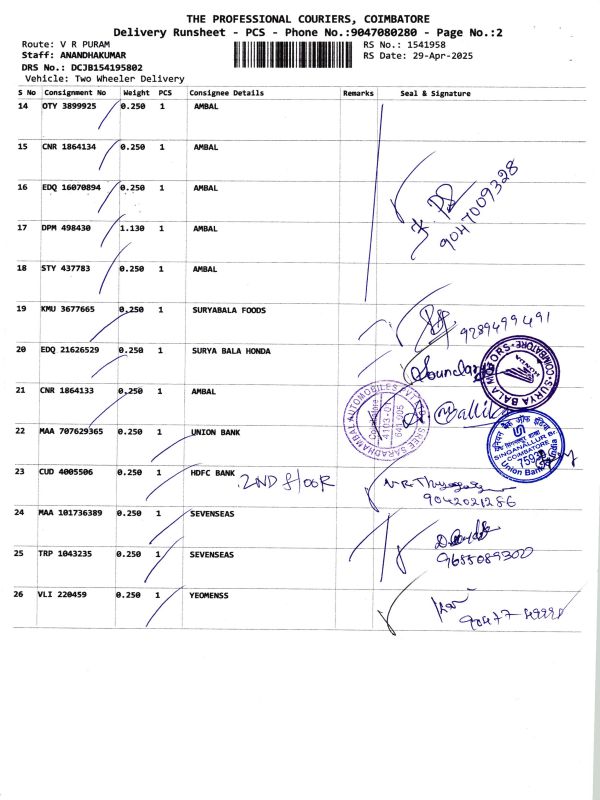 THE PROFESSIONAL COURIERS, COIMBATORE
Delivery Runsheet - PCS - Phone No.:9047080280 - Page No.:2
Route: V R PURAM RS No.: 1541958
Staff: ANANDHAKUMAR RS Date: 29-Apr-2025
DRS No.: DCJB154195802
Vehicle: Two Wheeler Delivery
S No Consignment No Weight PCS Consignee Details Remarks Seal & Signature
14 OTY 3899925 0.250 1 AMBAL
15 CNR 1864134 0.250 1 AMBAL
16 EDQ 16070894 0.250 1 AMBAL
9047009328
17 DPM 498430 1.130 1 AMBAL
18 STY 437783 0.250 1 AMBAL
19 KMU 3677665 0.250 1 SURYABALA FOODS
9289499491
20 EDQ 21626529 0.250 1 SURYA BALA HONDA
SURYA BALA MOTORS COIMBATORE
HONDA
21 CNR 1864133 0.250 1 AMBAL
SREE SARADHAMBAL AUTOMOBILES PVT LTD
Coimbatore
641 005
22 MAA 707629365 1 UNION BANK
यूनियन बैंक ऑफ इंडिया
SINGANALLUR Br.
COIMBATORE
Union Bank of India
23 CUD 4005506 0.250 1 HDFC BANK 2ND floor
9042021286
24 MAA 101736389 0.250 1 SEVENSEAS
9655089300
25 TRP 1043235 0.250 1 SEVENSEAS
26 VLI 220459 0.250 1 YEOMENSS